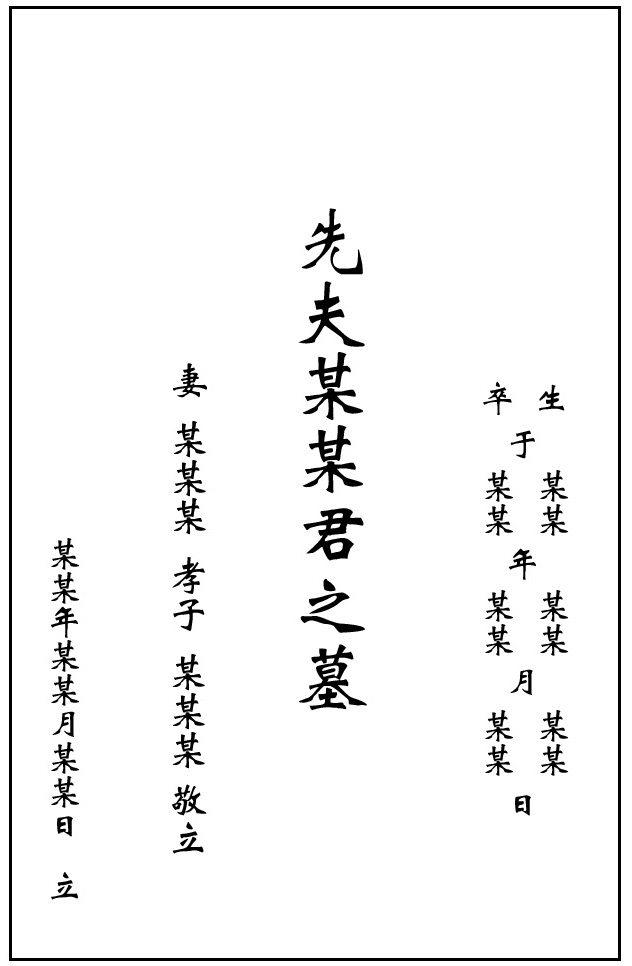 生 卒
于
某某 某某
年
某某 某某
月
某某 某某
日
先夫某某君之墓
妻 某某某 孝子 某某某 敬立
某某年某某月某某日 立